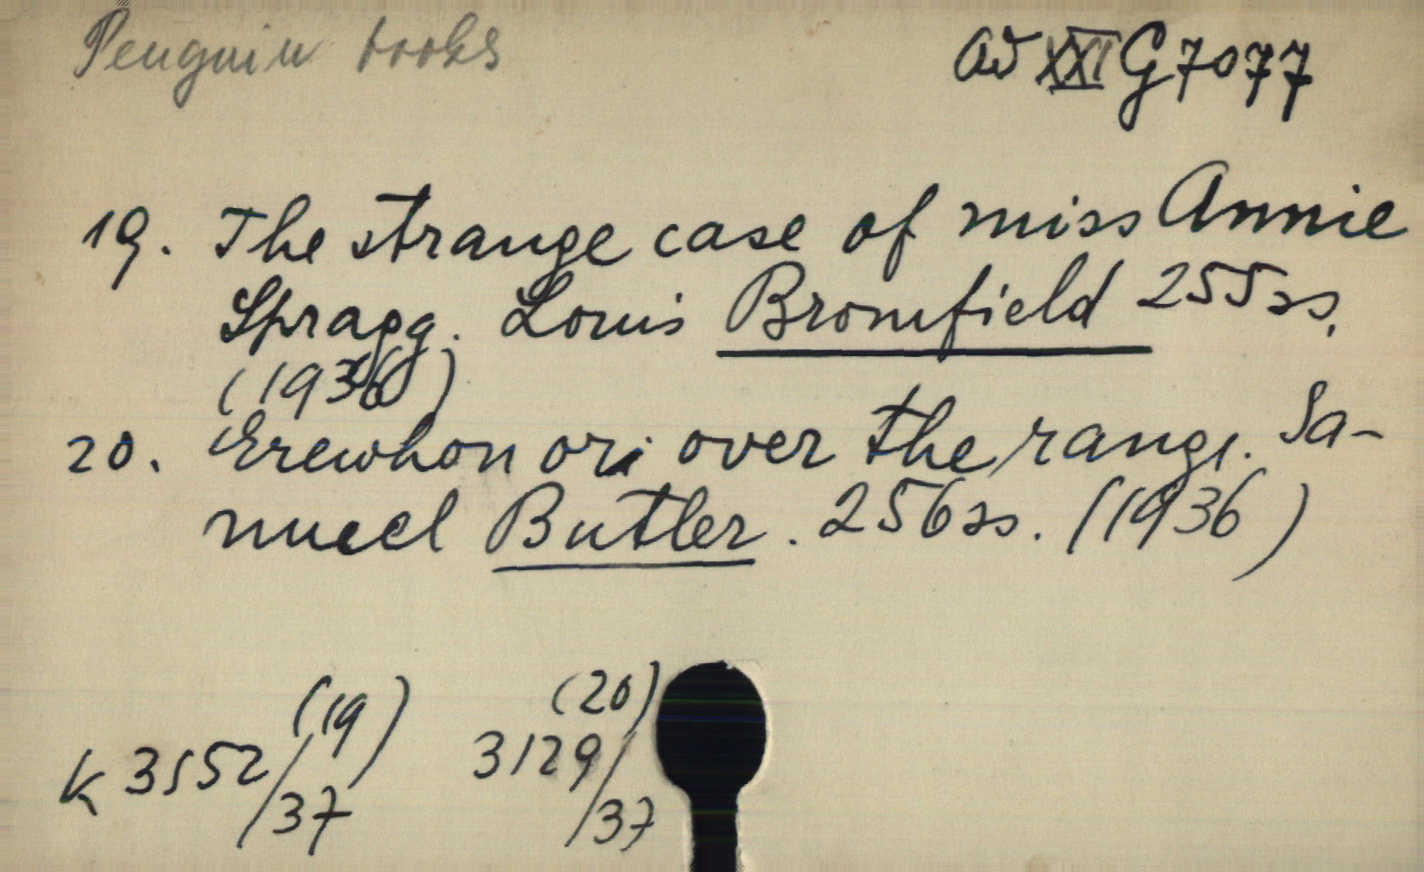 Penguin books
ad XXI G 7077
19. The strange case of miss Annie
Spragg. Louis Bromfield 255 ss.
(1936)
20. Erewhon or over the range. Sa-
muel Butler. 256 ss. (1936)
(19) (20)
K 3552/37 3129/37